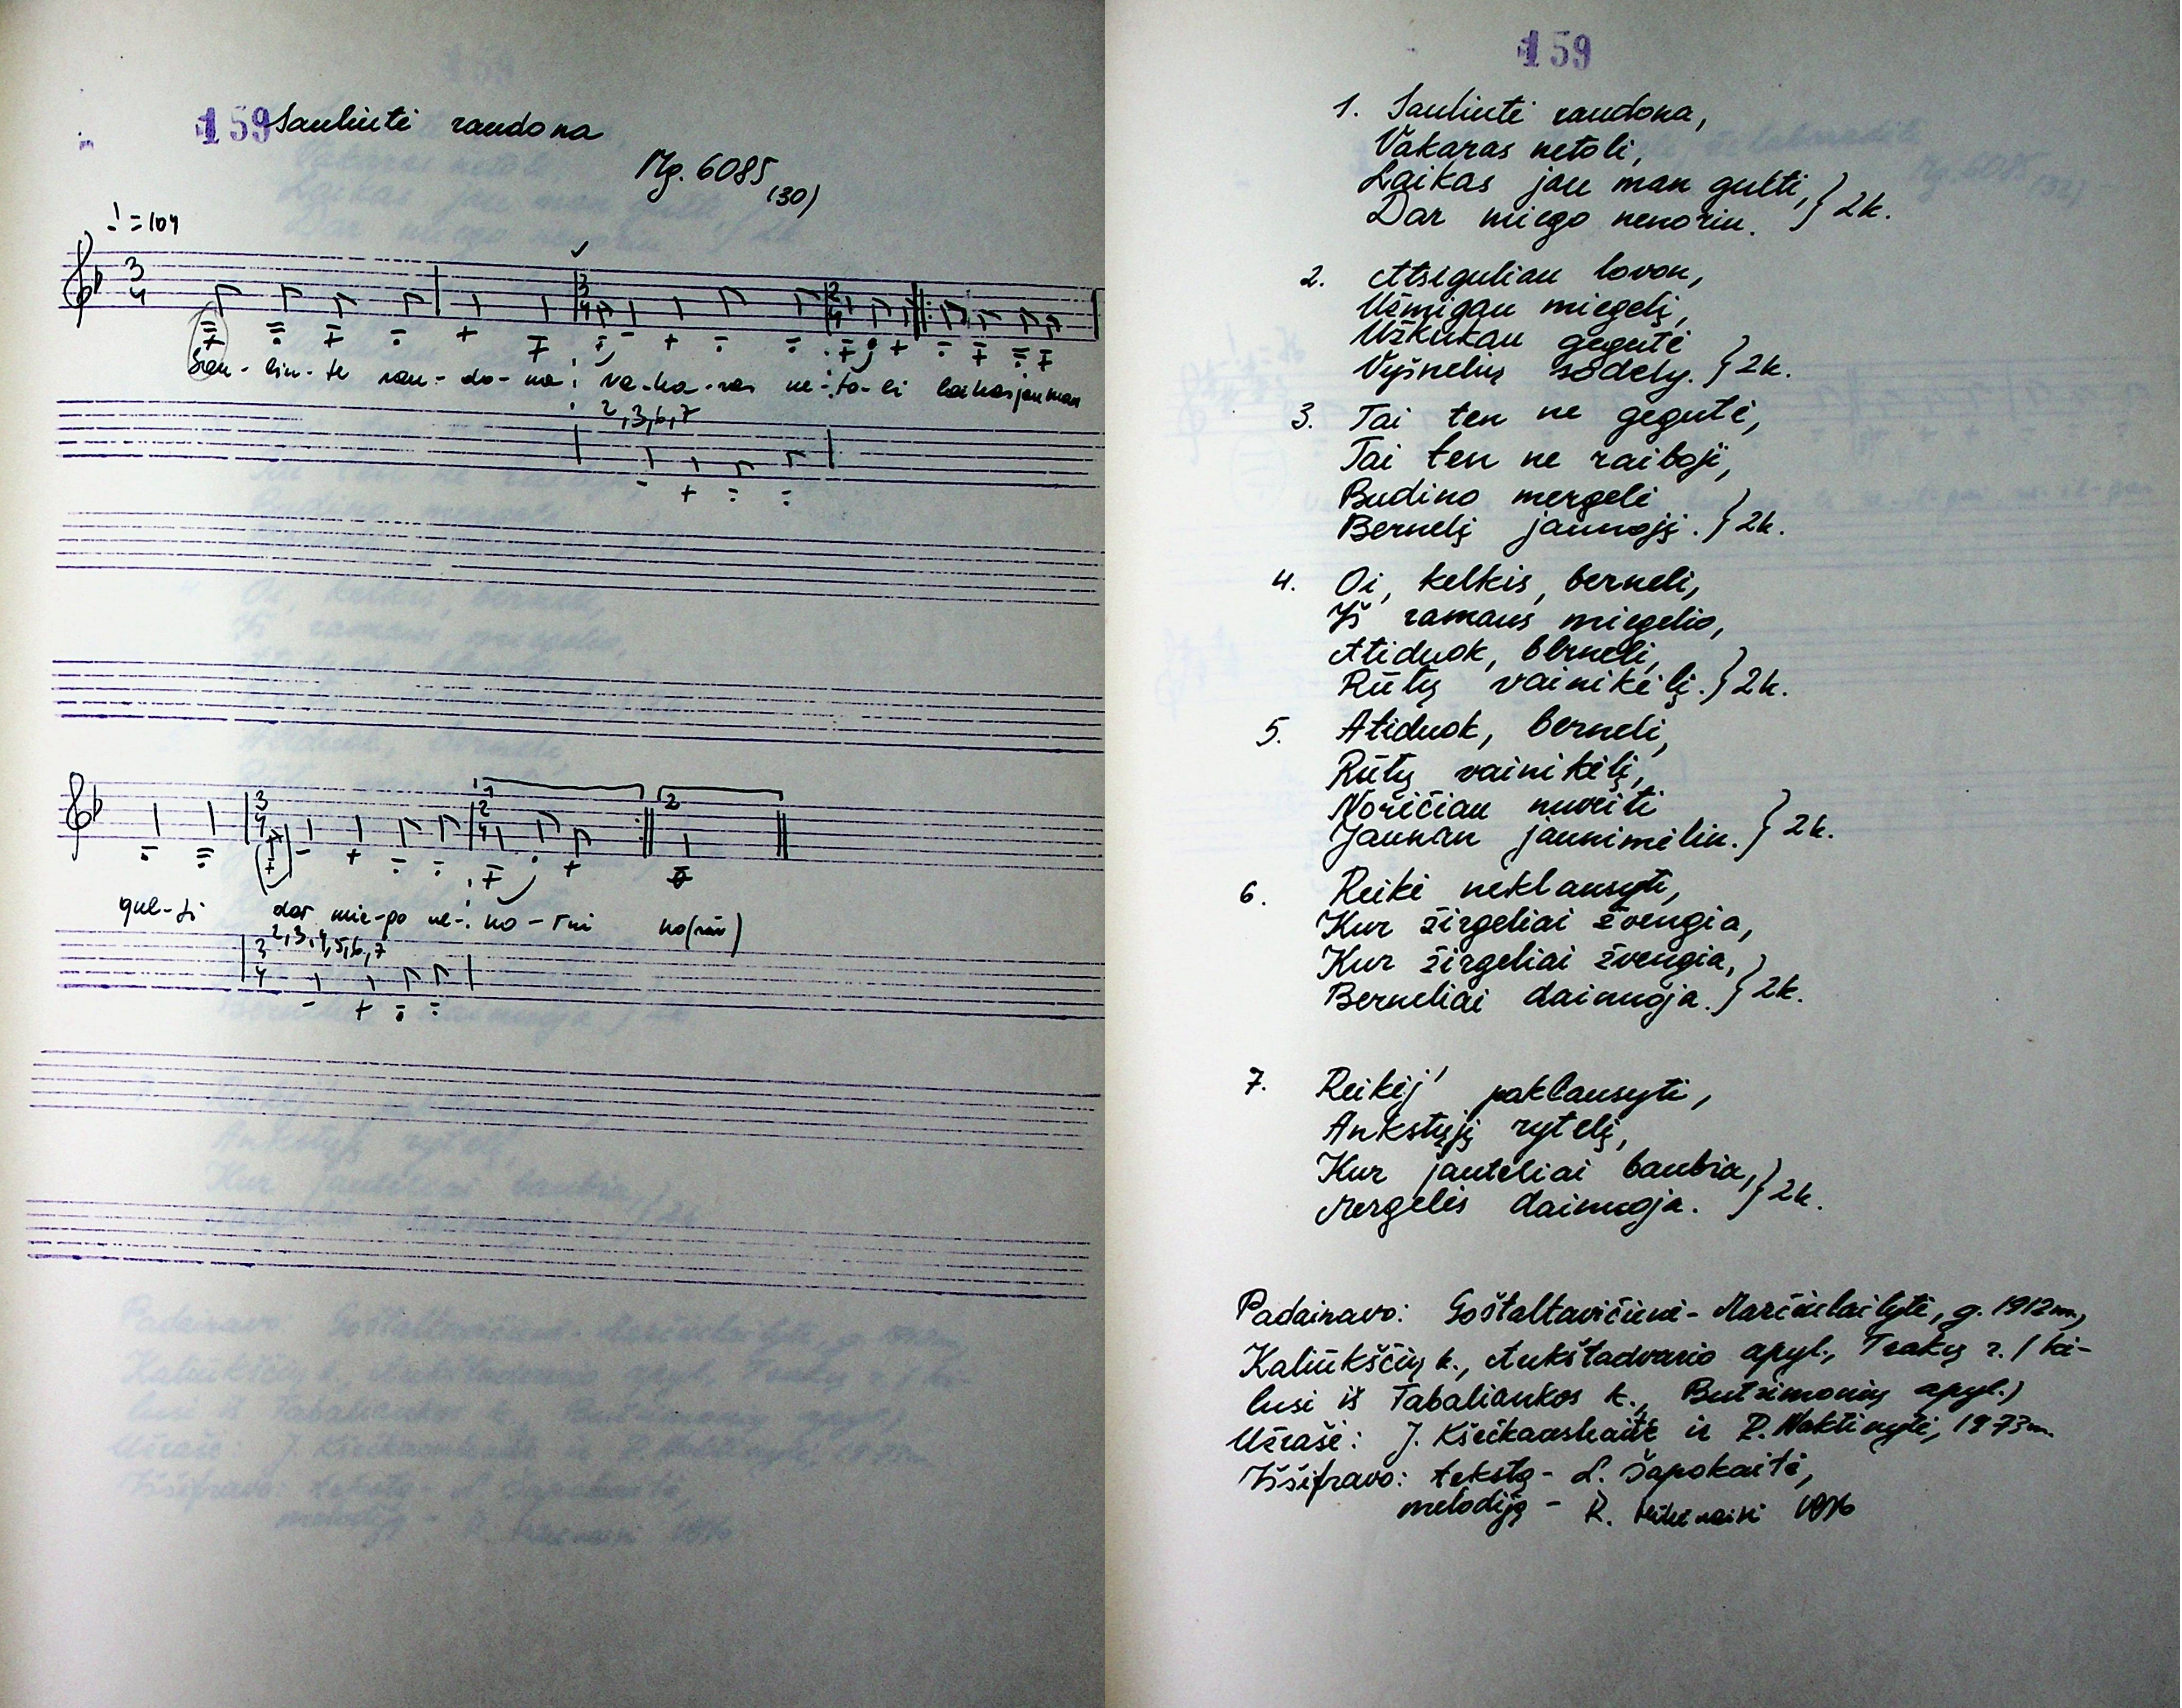 159 Sauliutė raudona
Mg. 6085 (30)
♩=104
3
4
3
4
2
4
Sau-liu-te rau-do-na va-ka-ras ne-to-li laikas jau man
2,3,6,7
3
4
1
2
4
2
gul-ti dar mie-go ne-no-riu no(riu)
2,3,4,5,6,7
3
4
159
1. Sauliutė raudona,
Vakaras netoli,
Laikas jau man gulti, } 2k.
Dar miego nenoriu.
2. Atsiguliau lovon,
Užmigau miegelį,
Užkukau gegutė
Vyšnelių sodely. } 2k.
3. Tai ten ne gegutė,
Tai ten ne raiboji,
Budino mergelė
Bernelį jaunąjį. } 2k.
4. Oi, kelkis, berneli,
Iš ramaus miegelio,
Atiduok, berneli,
Rūtų vainikėlį. } 2k.
5. Atiduok, berneli,
Rūtų vainikėlį,
Noričiau nuveiti
Jaunan jaunimėlin. } 2k.
6. Reikė neklausyti,
Kur žirgeliai žvengia,
Kur žirgeliai žvengia,
Berneliai dainuoja. } 2k.
7. Reikėj' paklausyti,
Ankstųjį rytelį,
Kur jauteliai baubia,
Mergelės dainuoja. } 2k.
Padainavo: Goštaltavičienė - Marčiulaitytė, g. 1912m,
Kaliūkščių k., Aukštadvario apyl., Trakų r. / ki-
lusi iš Tabaliaukos k., Butrimonių apyl.)
Užrašė: J. ir R. Noktinytė, 1973m.
Iššifravo: tekstą - L. Šapokaitė,
melodiją - R. 1976